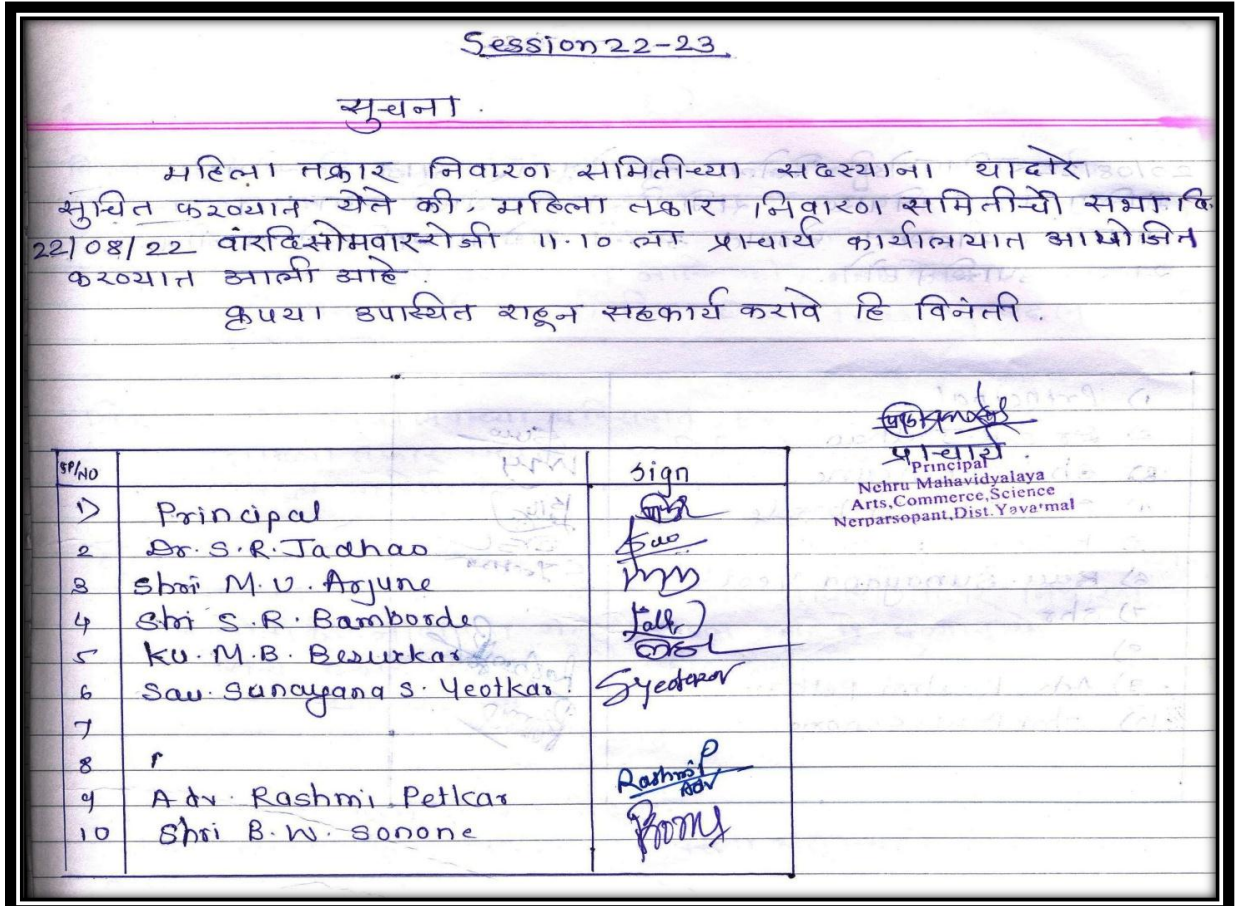 Session 22-23.
सुचना.
महिला तक्रार निवारण समितीच्या सदस्याना याद्वारे
सुचित करण्यात येते की, महिला तक्रार निवारण समितीची सभा दि.
22/08/22 वारदिसोमवार रोजी 11.10 ला प्राचार्य कार्यालयात आयोजित
करण्यात आली आहे.
कृपया उपास्थित राहून सहकार्य करावे हि विनंती.
प्राचार्य.
Principal
Nehru Mahavidyalaya
Arts,Commerce,Science
Nerparsopant,Dist.Yavatmal
SP/NO Sign
1) Principal
2 Dr. S.R. Jadhao
3 Shri M.U. Arjune
4 Shri S.R. Bamborde
5 Ku. M.B. Besurkar
6 Sau. Sunayana S. Yeotkar. Syeotkar
7
8
9 Adv. Rashmi Petkar Rashmi P Adv
10 Shri B.W. Sonone